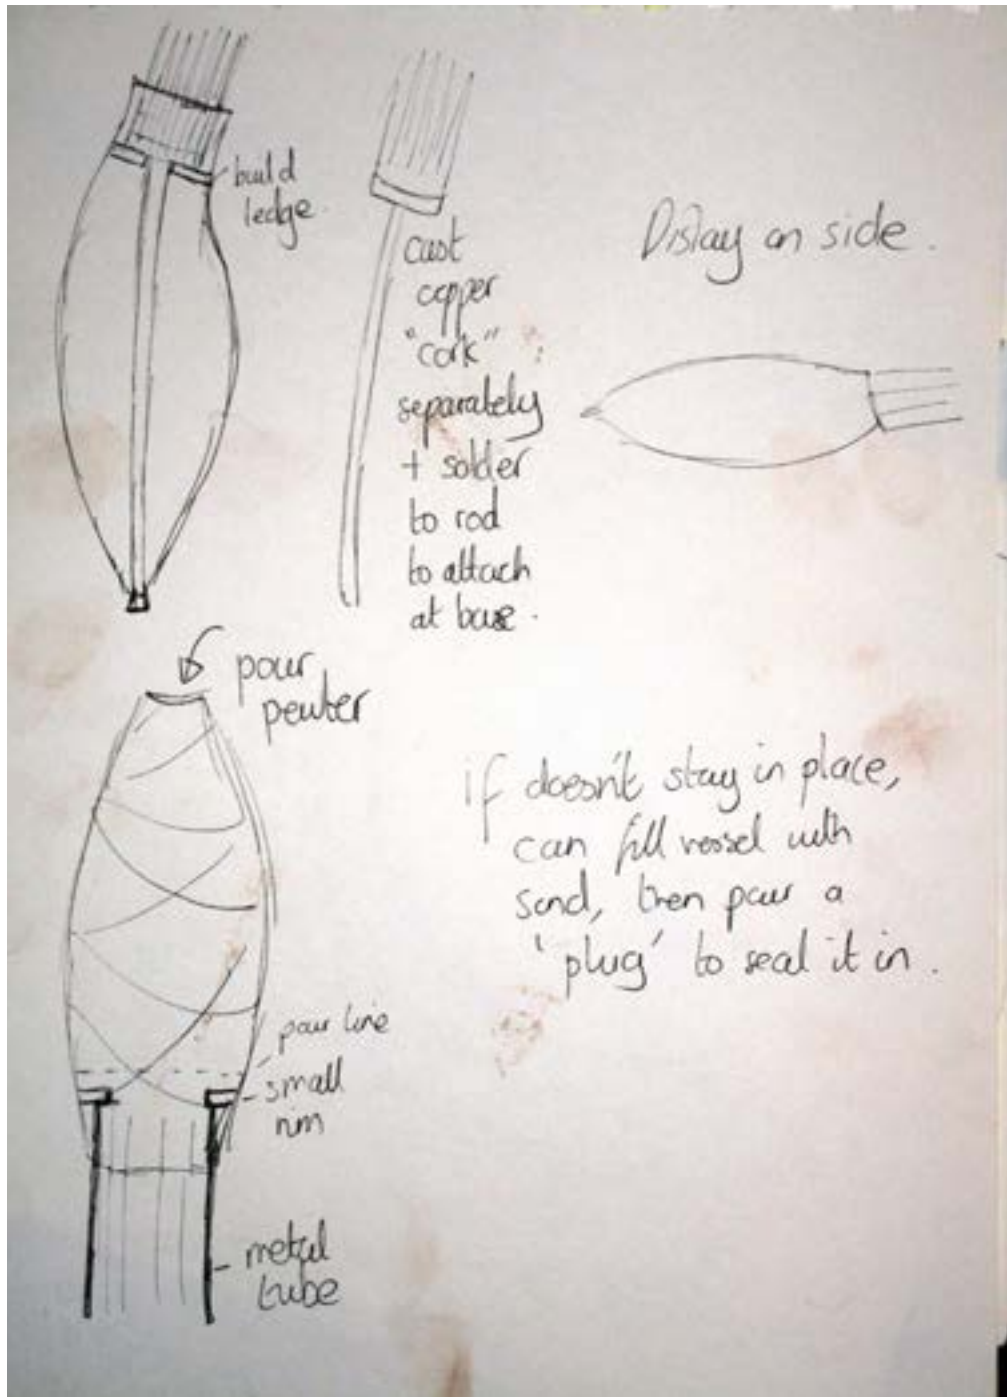 build
ledge.
cast
copper
"cork"
separately
+ solder
to rod
to attach
at base.
Dislay on side.
pour
pewter
if doesn't stay in place,
can fill vessel with
sand, then pour a
'plug' to seal it in.
pour line
small
rim
metal
tube